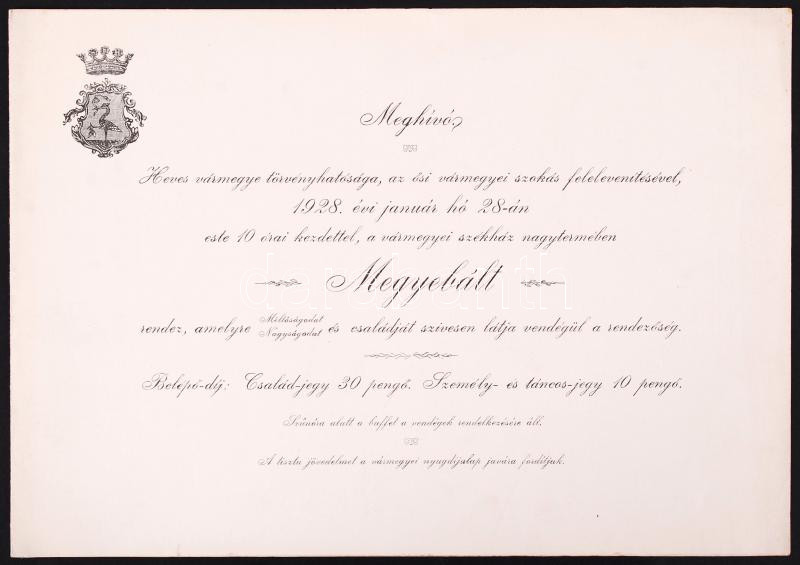 Meghívó
Heves vármegye törvényhatósága, az ősi vármegyei szokás felelevenítésével,
1928. évi január hó 28-án
este 10 órai kezdettel, a vármegyei székház nagytermében
Megyebált
rendez, amelyre Méltóságodat Nagyságodat és családját szivesen látja vendégül a rendezőség.
Belépő-dij: Család-jegy 30 pengő. Személy- és táncos-jegy 10 pengő.
Szünóra alatt a buffet a vendégek rendelkezésére áll.
A tiszta jövedelmet a vármegyei nyugdíjalap javára fordítjuk.